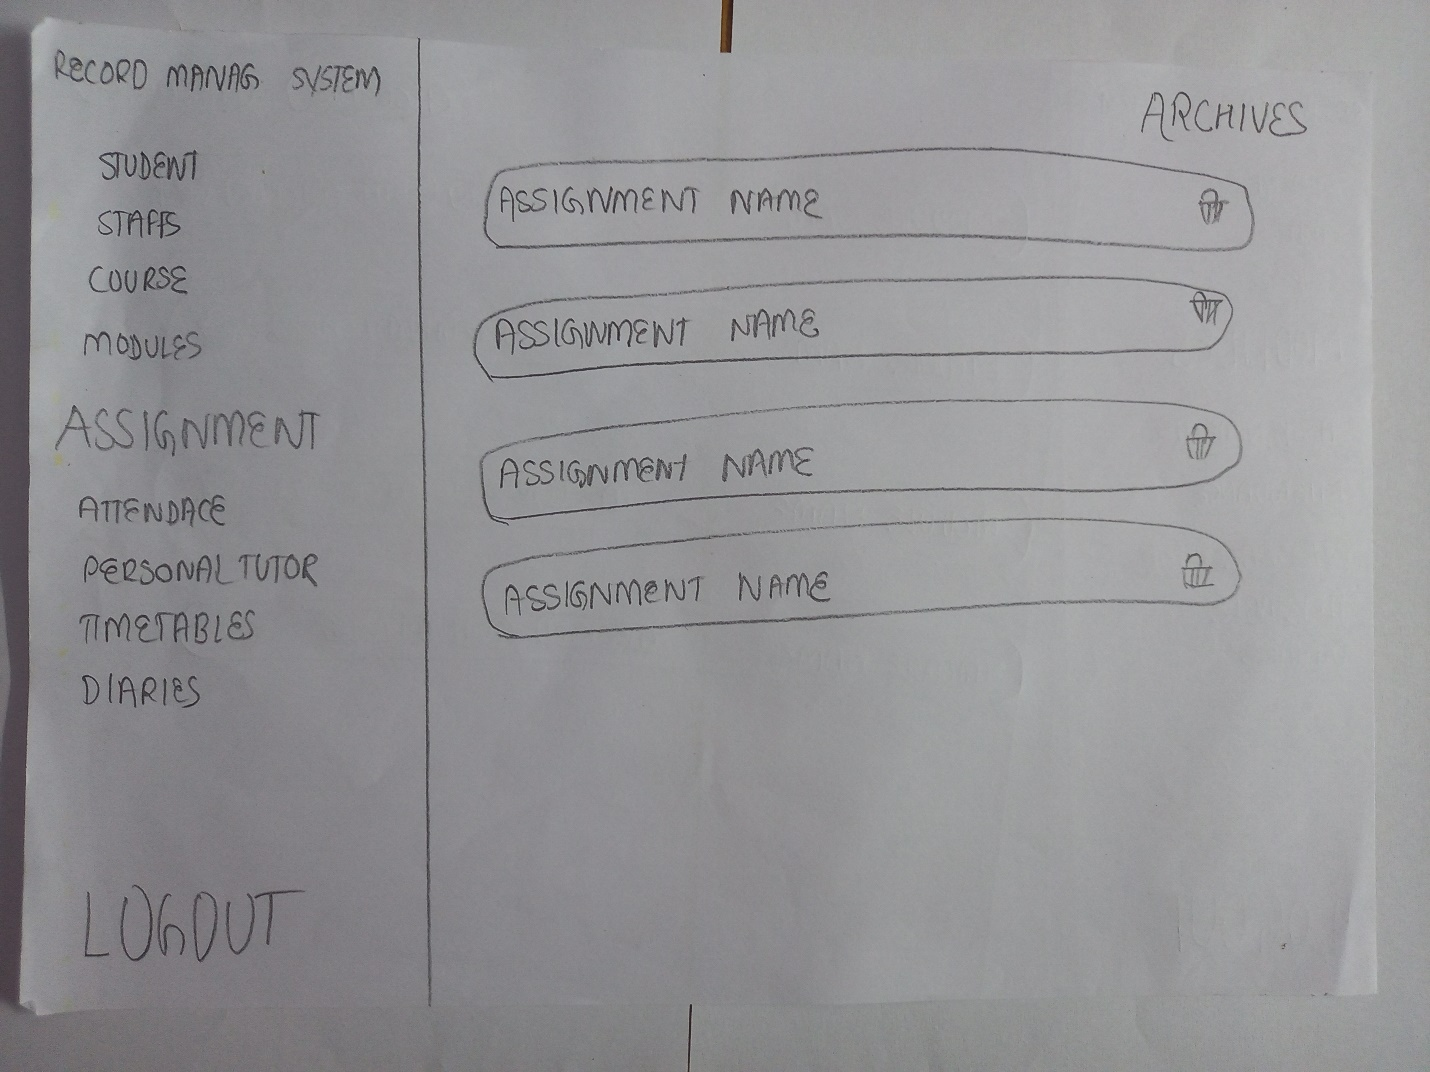 RECORD MANAG SYSTEM
STUDENT
STAFFS
COURSE
MODULES
ASSIGNMENT
ATTENDACE
PERSONAL TUTOR
TIMETABLES
DIARIES
LOGOUT
ARCHIVES
ASSIGNMENT NAME
ASSIGNMENT NAME
ASSIGNMENT NAME
ASSIGNMENT NAME